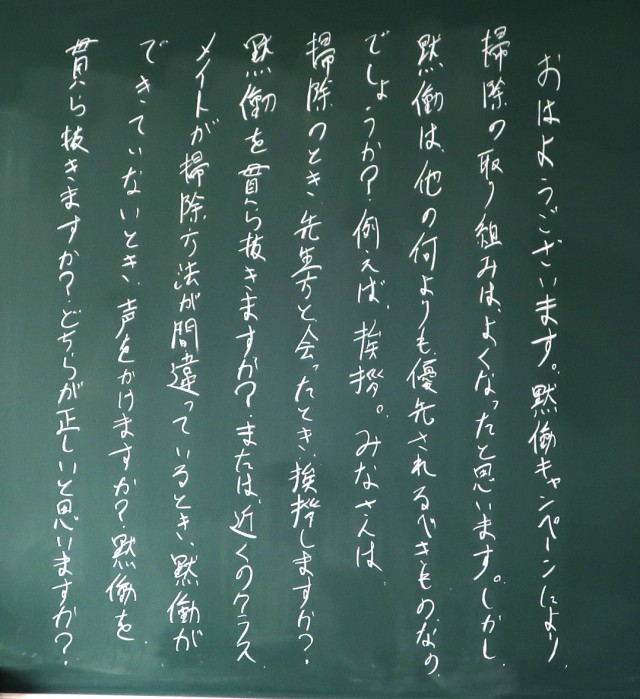 おはようございます。黙働キャンペーンにより、
掃除の取り組みは、よくなったと思います。しかし、
黙働は、他の何よりも優先されるべきものなの
でしょうか?例えば、挨拶。みなさんは、
掃除のとき、先生方と会ったとき、挨拶しますか?
黙働を貫ら抜きますか?または、近くのクラス
メイトが掃除方法が間違っているとき、黙働が
できていないとき、声をかけますか?黙働を
貫ら抜きますか?どちらが正しいと思いますか?